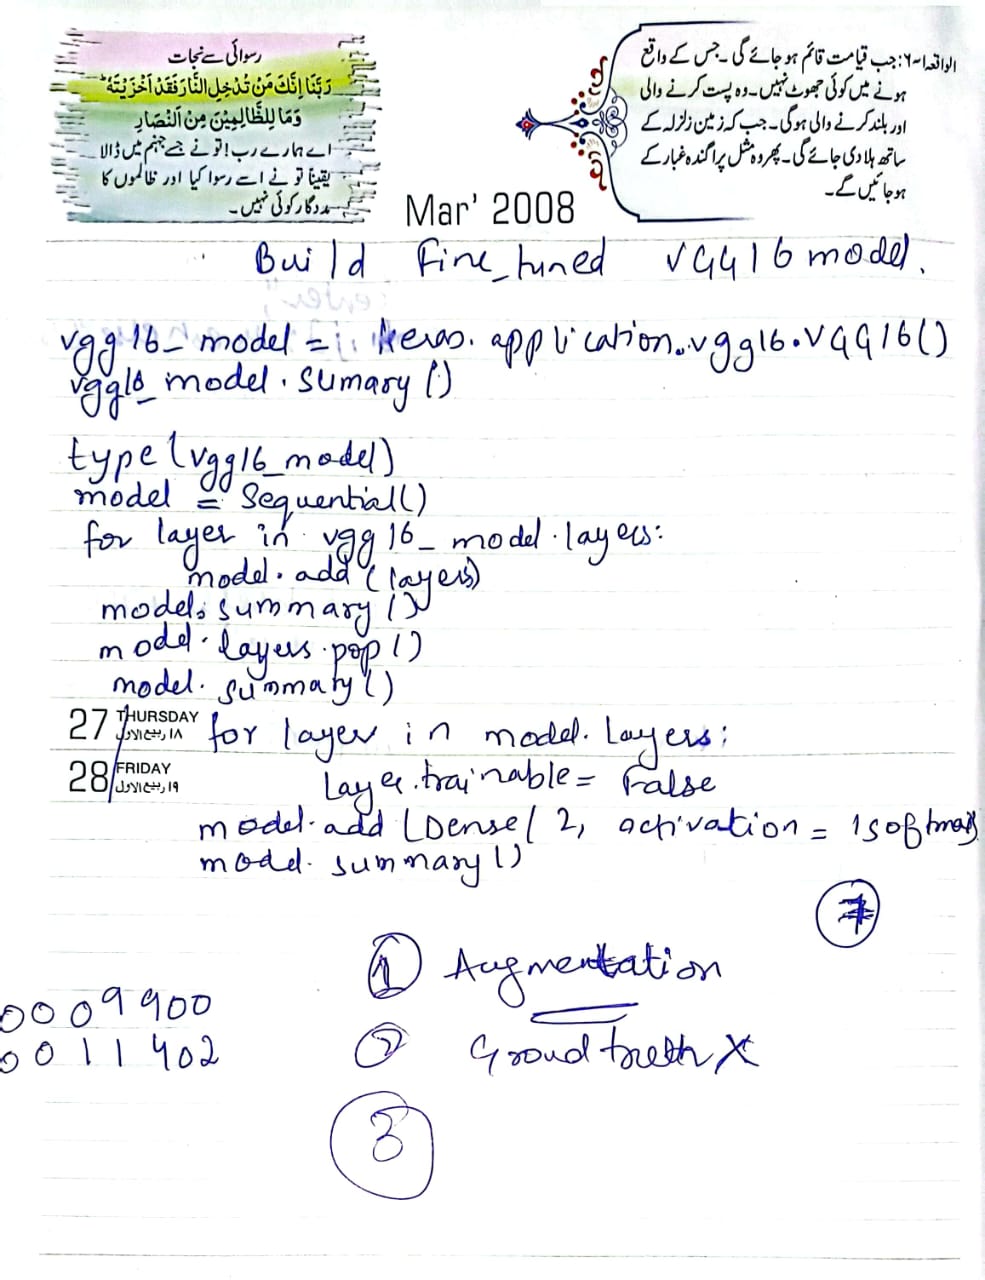 رسوائی سے نجات
رَبَّنَا إِنَّكَ مَنْ تُدْخِلِ النَّارَ فَقَدْ أَخْزَيْتَهُ
وَمَا لِلظَّالِمِيْنَ مِنْ اَنْصَارٍ
اے ہمارے رب! تو نے جسے جہنم میں ڈالا
یقیناً تو نے اسے رسوا کیا اور ظالموں کا
مددگار کوئی نہیں۔
الواقعہ ۱-۶: جب قیامت قائم ہو جائے گی۔ جس کے واقع
ہونے میں کوئی جھوٹ نہیں۔ وہ پست کرنے والی
اور بلند کرنے والی ہوگی۔ جب کہ زمین زلزلہ کے
ساتھ ہلا دی جائے گی۔ پھر وہ مثل پراگندہ غبار کے
ہو جائیں گے۔
Mar' 2008
Build Fine_tuned VGG16 model.
vgg16_ model = keras. application.vgg16.VGG16()
vgg16_model.sumary()
type(vgg16_model)
model = Sequential()
for layer in vgg16_ model.layers:
model.add(layers)
model.summary()
model.layers.pop()
model.summary()
27 THURSDAY
۱۸ ربیع الاول
for layer in model.layers:
28 FRIDAY
۱۹ ربیع الاول
Layer.trainable = False
model.add(Dense(2, activation = 'softmax
model.summary()
7
① Augmentation
0009900
② Groud trueth X
0011402
③